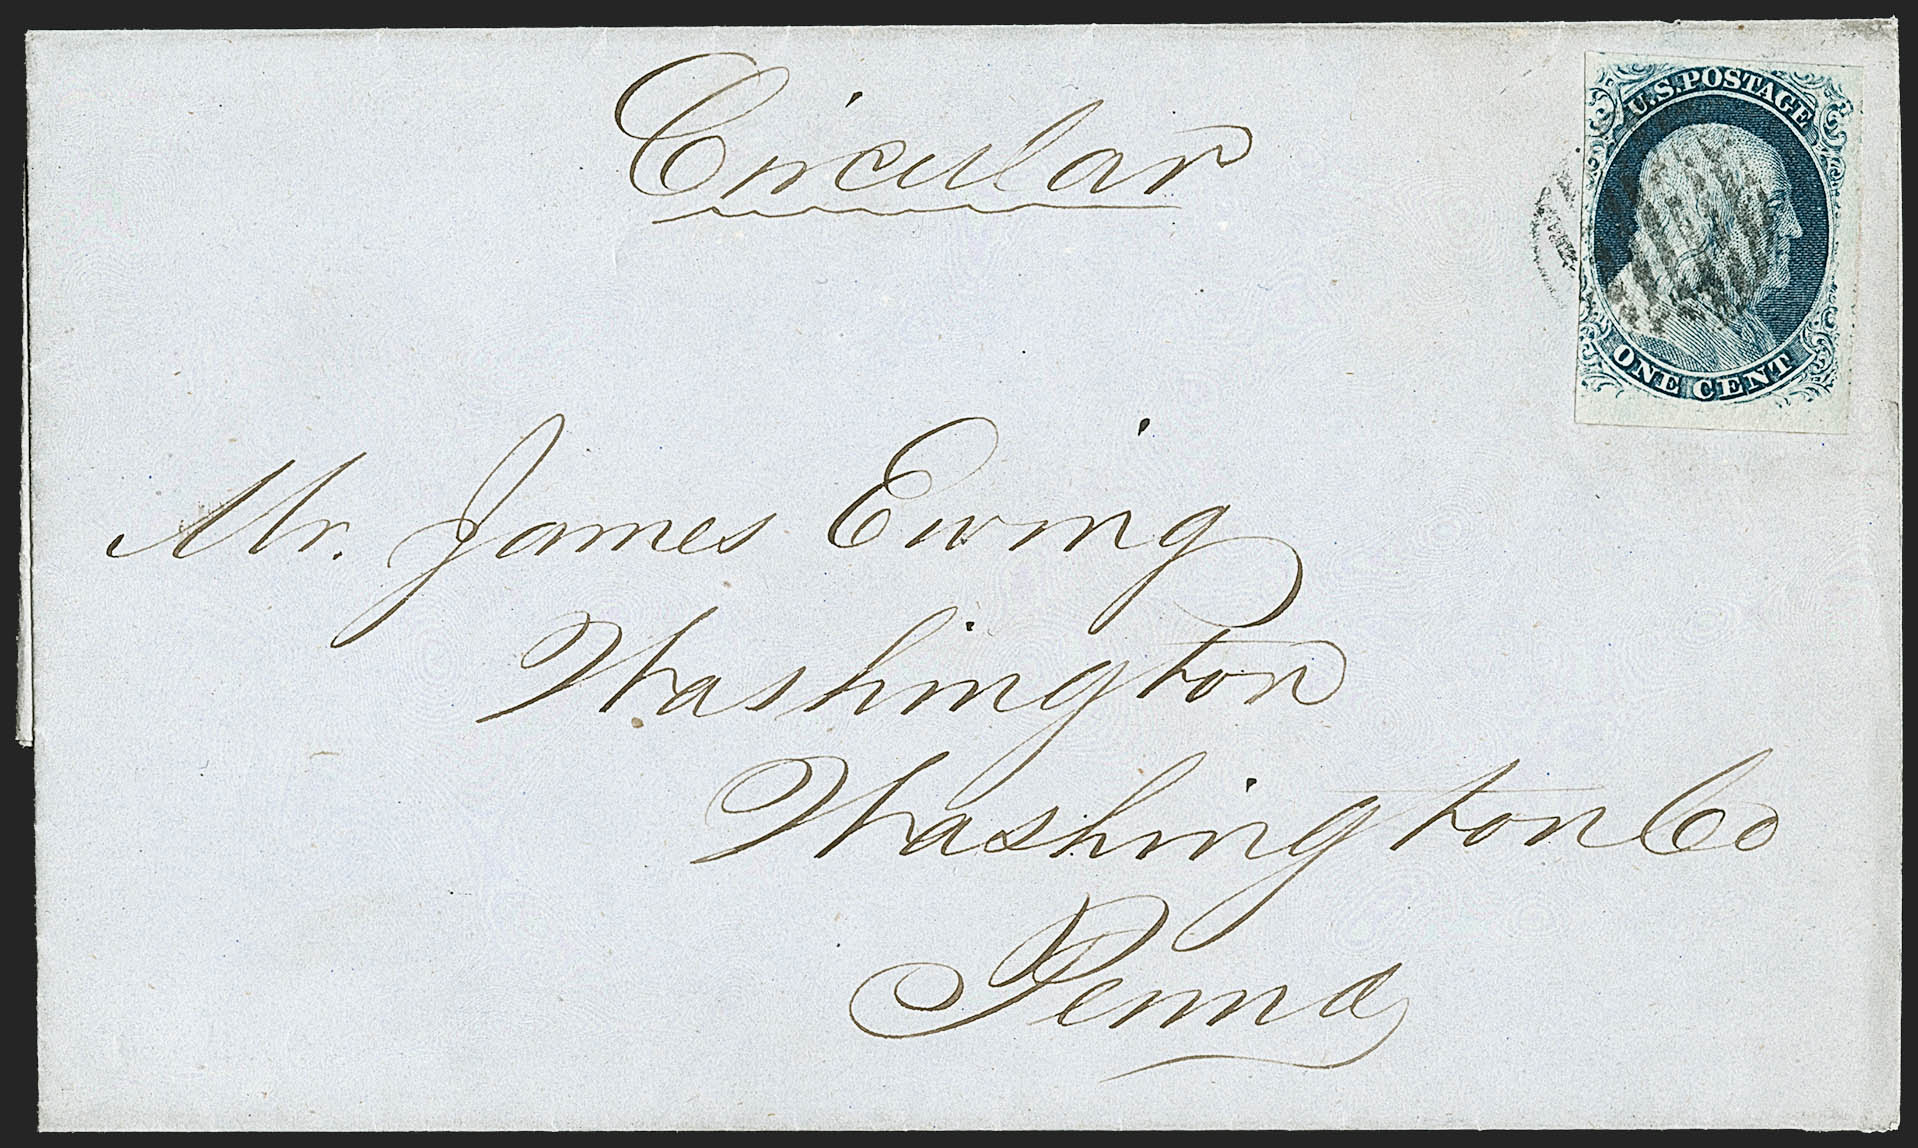 Circular
U.S. POSTAGE
ONE CENT
Mr. James Ewing
Washington
Washington Co
Penna